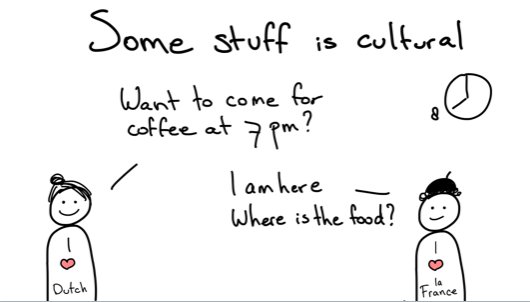 Some stuff is cultural
Want to come for
coffee at 7 pm?
8
I am here
Where is the food?
I
Dutch
I
la
France